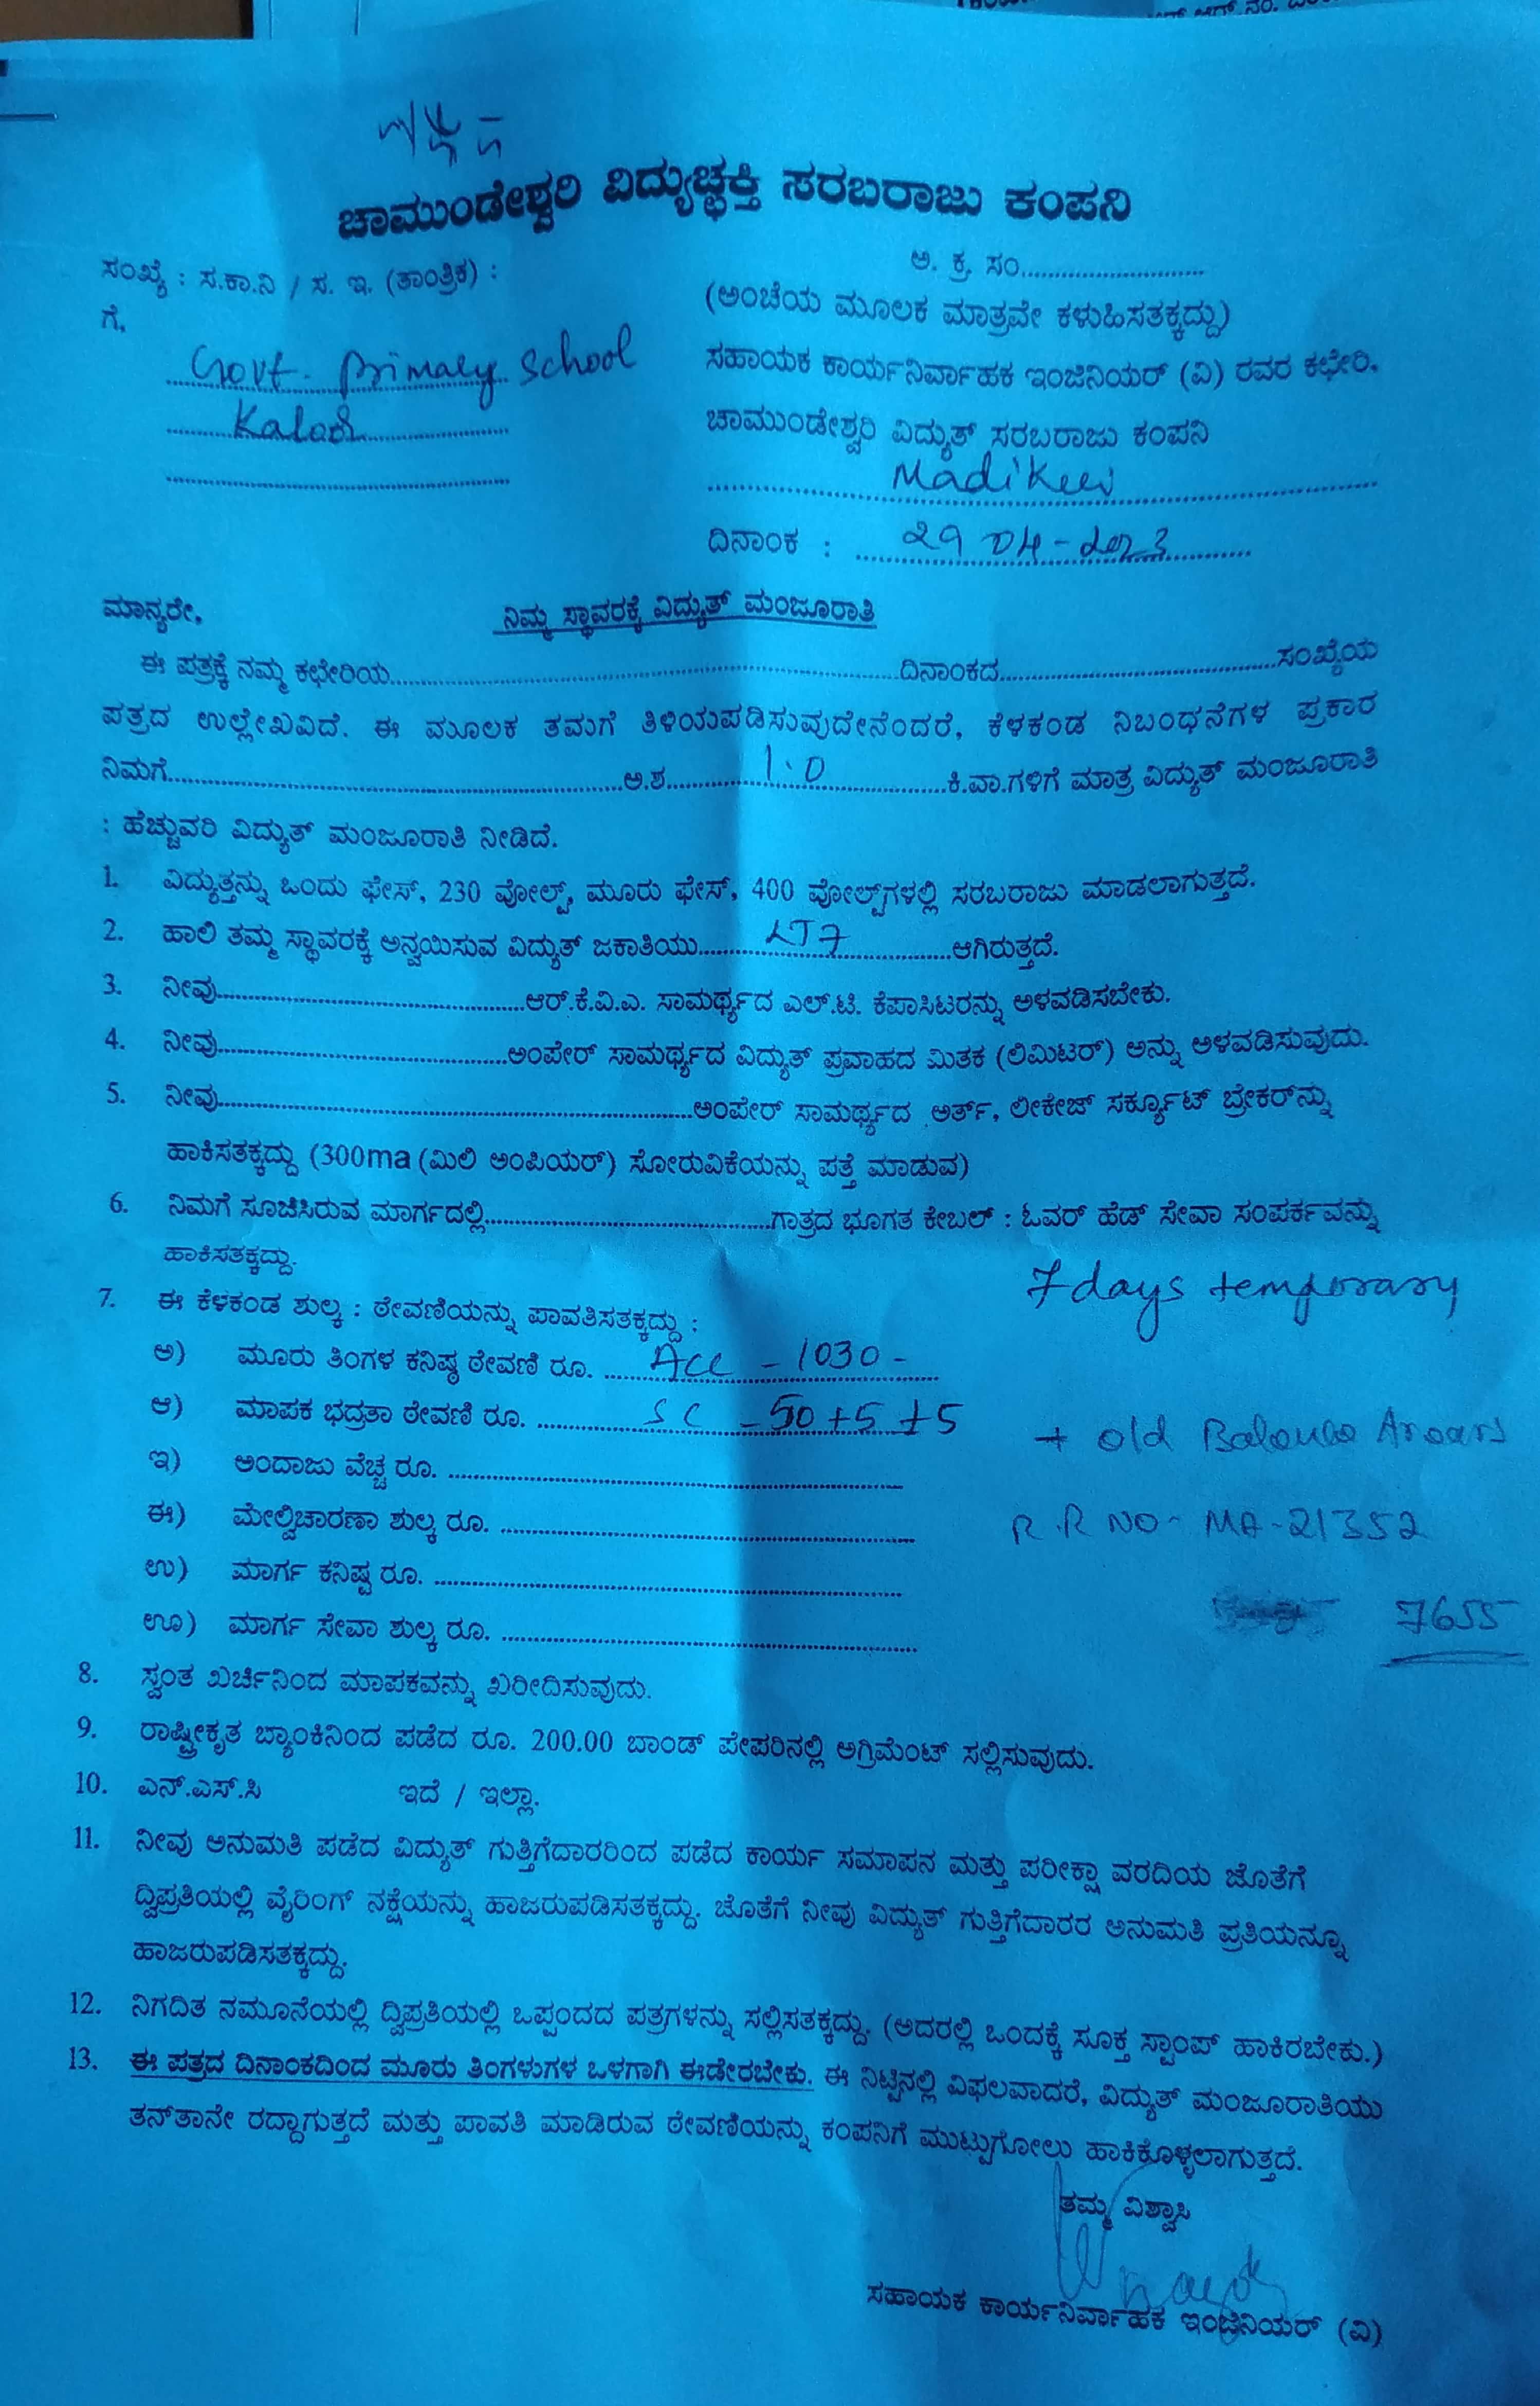 ಚಾಮುಂಡೇಶ್ವರಿ ವಿದ್ಯುಚ್ಛಕ್ತಿ ಸರಬರಾಜು ಕಂಪನಿ
ಸಂಖ್ಯೆ : ಸ.ಕಾ.ನಿ / ಸ. ಇ. (ತಾಂತ್ರಿಕ) :
ಅ. ಕ್ರ. ಸಂ..............................
ಗೆ,
(ಅಂಚೆಯ ಮೂಲಕ ಮಾತ್ರವೇ ಕಳುಹಿಸತಕ್ಕದ್ದು)
Govt. primary School
ಸಹಾಯಕ ಕಾರ್ಯನಿರ್ವಾಹಕ ಇಂಜಿನಿಯರ್ (ವಿ) ರವರ ಕಛೇರಿ,
ಚಾಮುಂಡೇಶ್ವರಿ ವಿದ್ಯುತ್ ಸರಬರಾಜು ಕಂಪನಿ
Madikeri
ದಿನಾಂಕ : 29 04-2023
ಮಾನ್ಯರೇ,
ನಿಮ್ಮ ಸ್ಥಾವರಕ್ಕೆ ವಿದ್ಯುತ್ ಮಂಜೂರಾತಿ
ಈ ಪತ್ರಕ್ಕೆ ನಮ್ಮ ಕಛೇರಿಯ....................ದಿನಾಂಕದ....................ಸಂಖ್ಯೆಯ
ಪತ್ರದ ಉಲ್ಲೇಖವಿದೆ. ಈ ಮೂಲಕ ತಮಗೆ ತಿಳಿಯಪಡಿಸುವುದೇನೆಂದರೆ, ಕೆಳಕಂಡ ನಿಬಂಧನೆಗಳ ಪ್ರಕಾರ
ನಿಮಗೆ....................ಅ.ಶ..........1.0..........ಕಿ.ವಾ.ಗಳಿಗೆ ಮಾತ್ರ ವಿದ್ಯುತ್ ಮಂಜೂರಾತಿ
: ಹೆಚ್ಚುವರಿ ವಿದ್ಯುತ್ ಮಂಜೂರಾತಿ ನೀಡಿದೆ.
1. ವಿದ್ಯುತ್ತನ್ನು ಒಂದು ಫೇಸ್, 230 ವೋಲ್ಟ್, ಮೂರು ಫೇಸ್, 400 ವೋಲ್ಟ್‌ಗಳಲ್ಲಿ ಸರಬರಾಜು ಮಾಡಲಾಗುತ್ತದೆ.
2. ಹಾಲಿ ತಮ್ಮ ಸ್ಥಾವರಕ್ಕೆ ಅನ್ವಯಿಸುವ ವಿದ್ಯುತ್ ಜಕಾತಿಯು..........LT7..........ಆಗಿರುತ್ತದೆ.
3. ನೀವು....................ಆರ್.ಕೆ.ವಿ.ಎ. ಸಾಮರ್ಥ್ಯದ ಎಲ್.ಟಿ. ಕೆಪಾಸಿಟರನ್ನು ಅಳವಡಿಸಬೇಕು.
4. ನೀವು....................ಅಂಪೇರ್ ಸಾಮರ್ಥ್ಯದ ವಿದ್ಯುತ್ ಪ್ರವಾಹದ ಮಿತಕ (ಲಿಮಿಟರ್) ಅನ್ನು ಅಳವಡಿಸುವುದು.
5. ನೀವು....................ಅಂಪೇರ್ ಸಾಮರ್ಥ್ಯದ ಅರ್ತ್, ಲೀಕೇಜ್ ಸರ್ಕ್ಯೂಟ್ ಬ್ರೇಕರ್‌ನ್ನು
ಹಾಕಿಸತಕ್ಕದ್ದು (300ma (ಮಿಲಿ ಅಂಪಿಯರ್) ಸೋರುವಿಕೆಯನ್ನು ಪತ್ತೆ ಮಾಡುವ)
6. ನಿಮಗೆ ಸೂಚಿಸಿರುವ ಮಾರ್ಗದಲ್ಲಿ....................ಗಾತ್ರದ ಭೂಗತ ಕೇಬಲ್ : ಓವರ್ ಹೆಡ್ ಸೇವಾ ಸಂಪರ್ಕವನ್ನು
ಹಾಕಿಸತಕ್ಕದ್ದು.
7days temporary
7. ಈ ಕೆಳಕಂಡ ಶುಲ್ಕ : ಠೇವಣಿಯನ್ನು ಪಾವತಿಸತಕ್ಕದ್ದು :
ಅ) ಮೂರು ತಿಂಗಳ ಕನಿಷ್ಠ ಠೇವಣಿ ರೂ. ACC - 1030 -
ಆ) ಮಾಪಕ ಭದ್ರತಾ ಠೇವಣಿ ರೂ. SC - 50+5+5
+ old Balance Arears
ಇ) ಅಂದಾಜು ವೆಚ್ಚ ರೂ. ....................
ಈ) ಮೇಲ್ವಿಚಾರಣಾ ಶುಲ್ಕ ರೂ. ....................
R.R NO- MA-21352
ಉ) ಮಾರ್ಗ ಕನಿಷ್ಟ ರೂ. ....................
ಊ) ಮಾರ್ಗ ಸೇವಾ ಶುಲ್ಕ ರೂ. ....................
7655
8. ಸ್ವಂತ ಖರ್ಚಿನಿಂದ ಮಾಪಕವನ್ನು ಖರೀದಿಸುವುದು.
9. ರಾಷ್ಟ್ರೀಕೃತ ಬ್ಯಾಂಕಿನಿಂದ ಪಡೆದ ರೂ. 200.00 ಬಾಂಡ್ ಪೇಪರಿನಲ್ಲಿ ಅಗ್ರಿಮೆಂಟ್ ಸಲ್ಲಿಸುವುದು.
10. ಎನ್.ಎಸ್.ಸಿ ಇದೆ / ಇಲ್ಲಾ.
11. ನೀವು ಅನುಮತಿ ಪಡೆದ ವಿದ್ಯುತ್ ಗುತ್ತಿಗೆದಾರರಿಂದ ಪಡೆದ ಕಾರ್ಯ ಸಮಾಪನ ಮತ್ತು ಪರೀಕ್ಷಾ ವರದಿಯ ಜೊತೆಗೆ
ದ್ವಿಪ್ರತಿಯಲ್ಲಿ ವೈರಿಂಗ್ ನಕ್ಷೆಯನ್ನು ಹಾಜರುಪಡಿಸತಕ್ಕದ್ದು. ಜೊತೆಗೆ ನೀವು ವಿದ್ಯುತ್ ಗುತ್ತಿಗೆದಾರರ ಅನುಮತಿ ಪ್ರತಿಯನ್ನೂ
ಹಾಜರುಪಡಿಸತಕ್ಕದ್ದು.
12. ನಿಗದಿತ ನಮೂನೆಯಲ್ಲಿ ದ್ವಿಪ್ರತಿಯಲ್ಲಿ ಒಪ್ಪಂದದ ಪತ್ರಗಳನ್ನು ಸಲ್ಲಿಸತಕ್ಕದ್ದು. (ಅದರಲ್ಲಿ ಒಂದಕ್ಕೆ ಸೂಕ್ತ ಸ್ಟಾಂಪ್ ಹಾಕಿರಬೇಕು.)
13. ಈ ಪತ್ರದ ದಿನಾಂಕದಿಂದ ಮೂರು ತಿಂಗಳುಗಳ ಒಳಗಾಗಿ ಈಡೇರಬೇಕು. ಈ ನಿಟ್ಟಿನಲ್ಲಿ ವಿಫಲವಾದರೆ, ವಿದ್ಯುತ್ ಮಂಜೂರಾತಿಯು
ತನ್‌ತಾನೇ ರದ್ದಾಗುತ್ತದೆ ಮತ್ತು ಪಾವತಿ ಮಾಡಿರುವ ಠೇವಣಿಯನ್ನು ಕಂಪನಿಗೆ ಮುಟ್ಟುಗೋಲು ಹಾಕಿಕೊಳ್ಳಲಾಗುತ್ತದೆ.
ತಮ್ಮ ವಿಶ್ವಾಸಿ
ಸಹಾಯಕ ಕಾರ್ಯನಿರ್ವಾಹಕ ಇಂಜಿನಿಯರ್ (ವಿ)